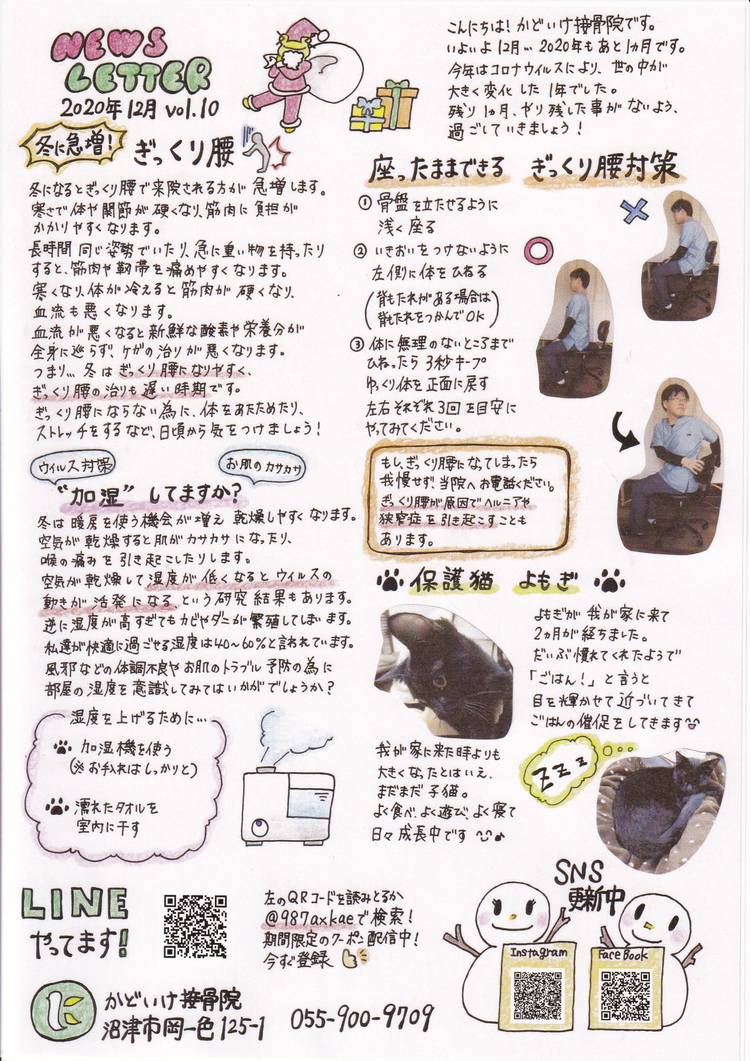 NEWS
LETTER
2020年12月 vol.10
こんにちは！かどいけ接骨院です。
いよいよ12月… 2020年もあと1ヵ月です。
今年はコロナウイルスにより、世の中が
大きく変化した1年でした。
残り1ヵ月、やり残した事がないよう、
過ごしていきましょう！
冬に急増！ ぎっくり腰
冬になるとぎっくり腰で来院される方が急増します。
寒さで体や関節が硬くなり、筋肉に負担が
かかりやすくなります。
長時間同じ姿勢でいたり、急に重い物を持ったり
すると、筋肉や靭帯を痛めやすくなります。
寒くなり、体が冷えると筋肉が硬くなり、
血流も悪くなります。
血流が悪くなると新鮮な酸素や栄養分が
全身に巡らず、ケガの治りが悪くなります。
つまり… 冬はぎっくり腰になりやすく、
ぎっくり腰の治りも遅い時期です。
ぎっくり腰にならない為に、体をあたためたり、
ストレッチをするなど、日頃から気をつけましょう！
座ったままできる ぎっくり腰対策
① 骨盤を立たせるように
浅く座る
② いきおいをつけないように
左側に体をひねる
(背もたれがある場合は
背もたれをつかんでOK)
③ 体に無理のないところまで
ひねったら3秒キープ
ゆっくり体を正面に戻す
左右それぞれ3回を目安に
やってみてください。
もし、ぎっくり腰になってしまったら
我慢せず当院へお電話ください。
ぎっくり腰が原因でヘルニアや
狭窄症を引き起こすことも
あります。
ウイルス対策
お肌のカサカサ
"加湿"してますか？
冬は暖房を使う機会が増え乾燥しやすくなります。
空気が乾燥すると肌がカサカサになったり、
喉の痛みを引き起こしたりします。
空気が乾燥して湿度が低くなるとウイルスの
動きが活発になるという研究結果もあります。
逆に湿度が高すぎてもカビやダニが繁殖してしまいます。
私達が快適に過ごせる湿度は40〜60%と言われています。
風邪などの体調不良やお肌のトラブル予防の為に
部屋の湿度を意識してみてはいかがでしょうか？
湿度を上げるために…
加湿機を使う
(※お手入れはしっかりと)
濡れたタオルを
室内に干す
保護猫 よもぎ
よもぎが我が家に来て
2ヵ月が経ちました。
だいぶ慣れてくれたようで
「ごはん！」と言うと
目を輝かせて近づいてきて
ごはんの催促をしてきます
我が家に来た時よりも
大きくなったとはいえ、
まだまだ子猫。
よく食べ、よく遊び、よく寝て
日々成長中です
ZZZ
LINE
やってます！
左のQRコードを読みとるか
@987axkaeで検索！
期間限定のクーポン配信中！
今すぐ登録
SNS
更新中
Instagram
FaceBook
かどいけ接骨院
沼津市岡一色125-1
055-900-9709